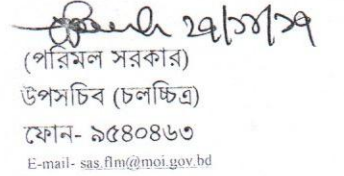 ২৭/১১/১৭
(পরিমল সরকার)
উপসচিব (চলচ্চিত্র)
ফোন- ৯৫৪০৪৬৩
E-mail- sas.flm@moi.gov.bd